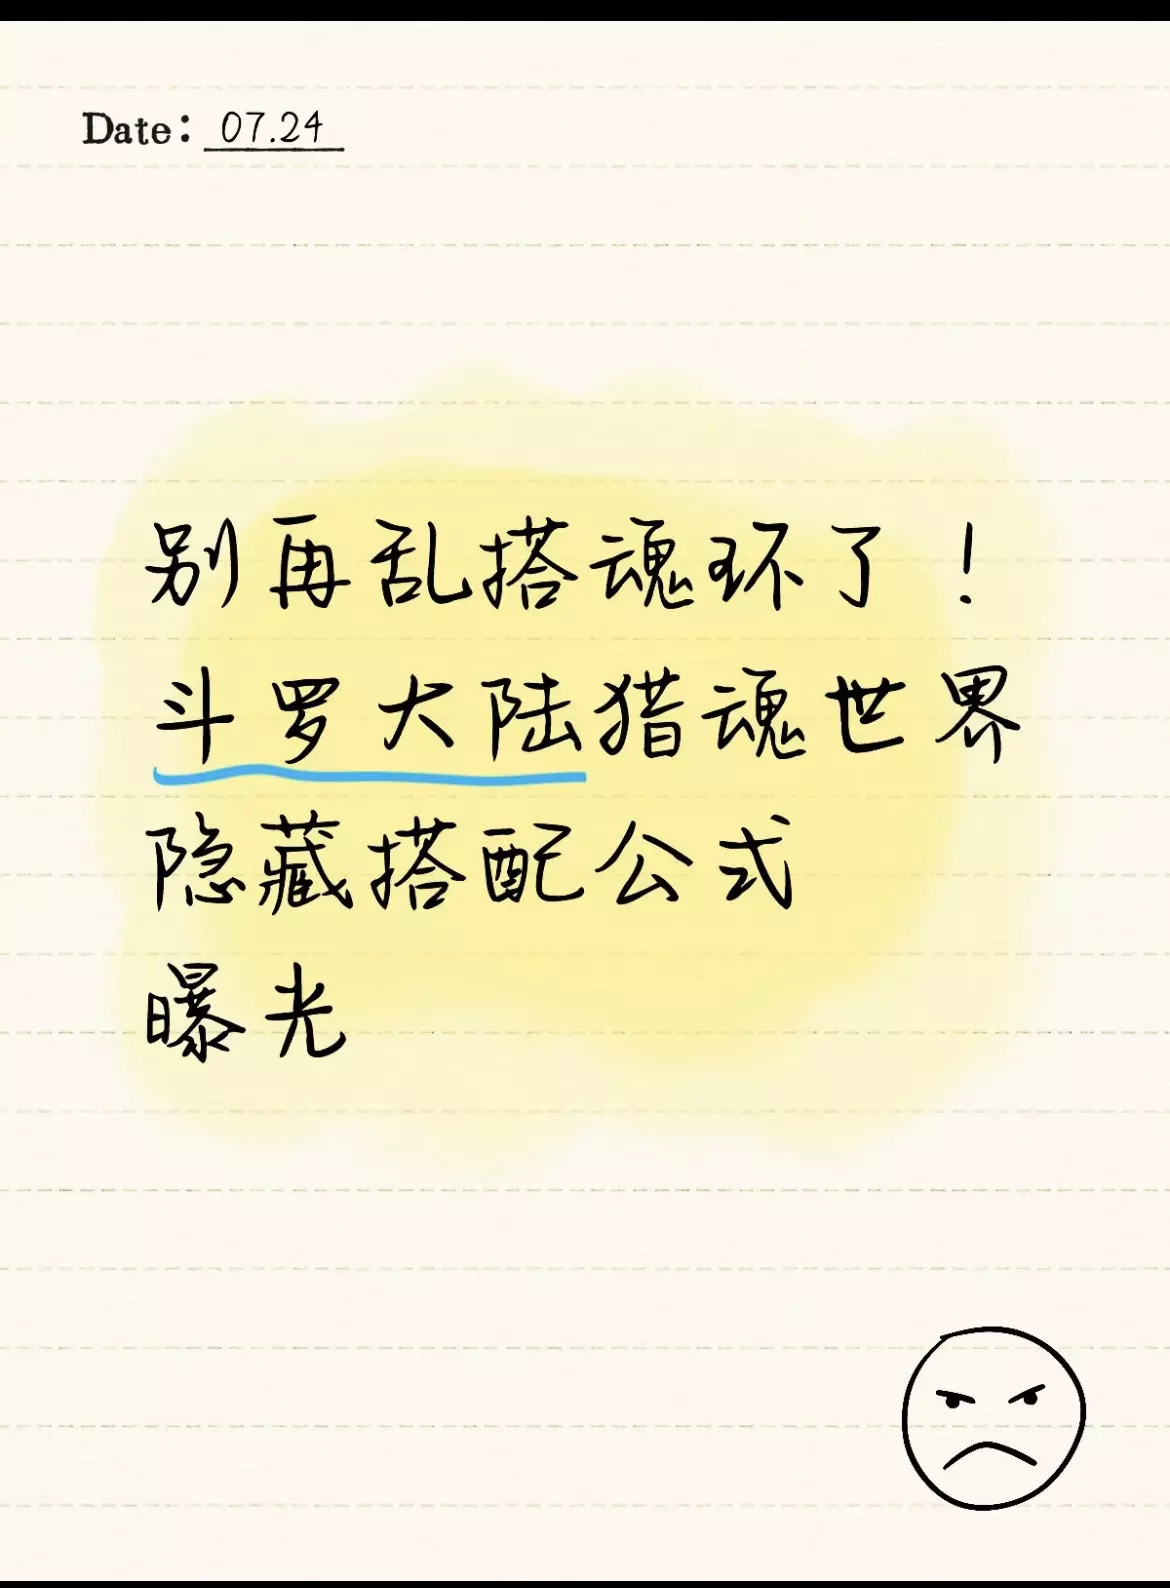 Date: 07.24
别再乱搭魂环了！
斗罗大陆猎魂世界
隐藏搭配公式
曝光